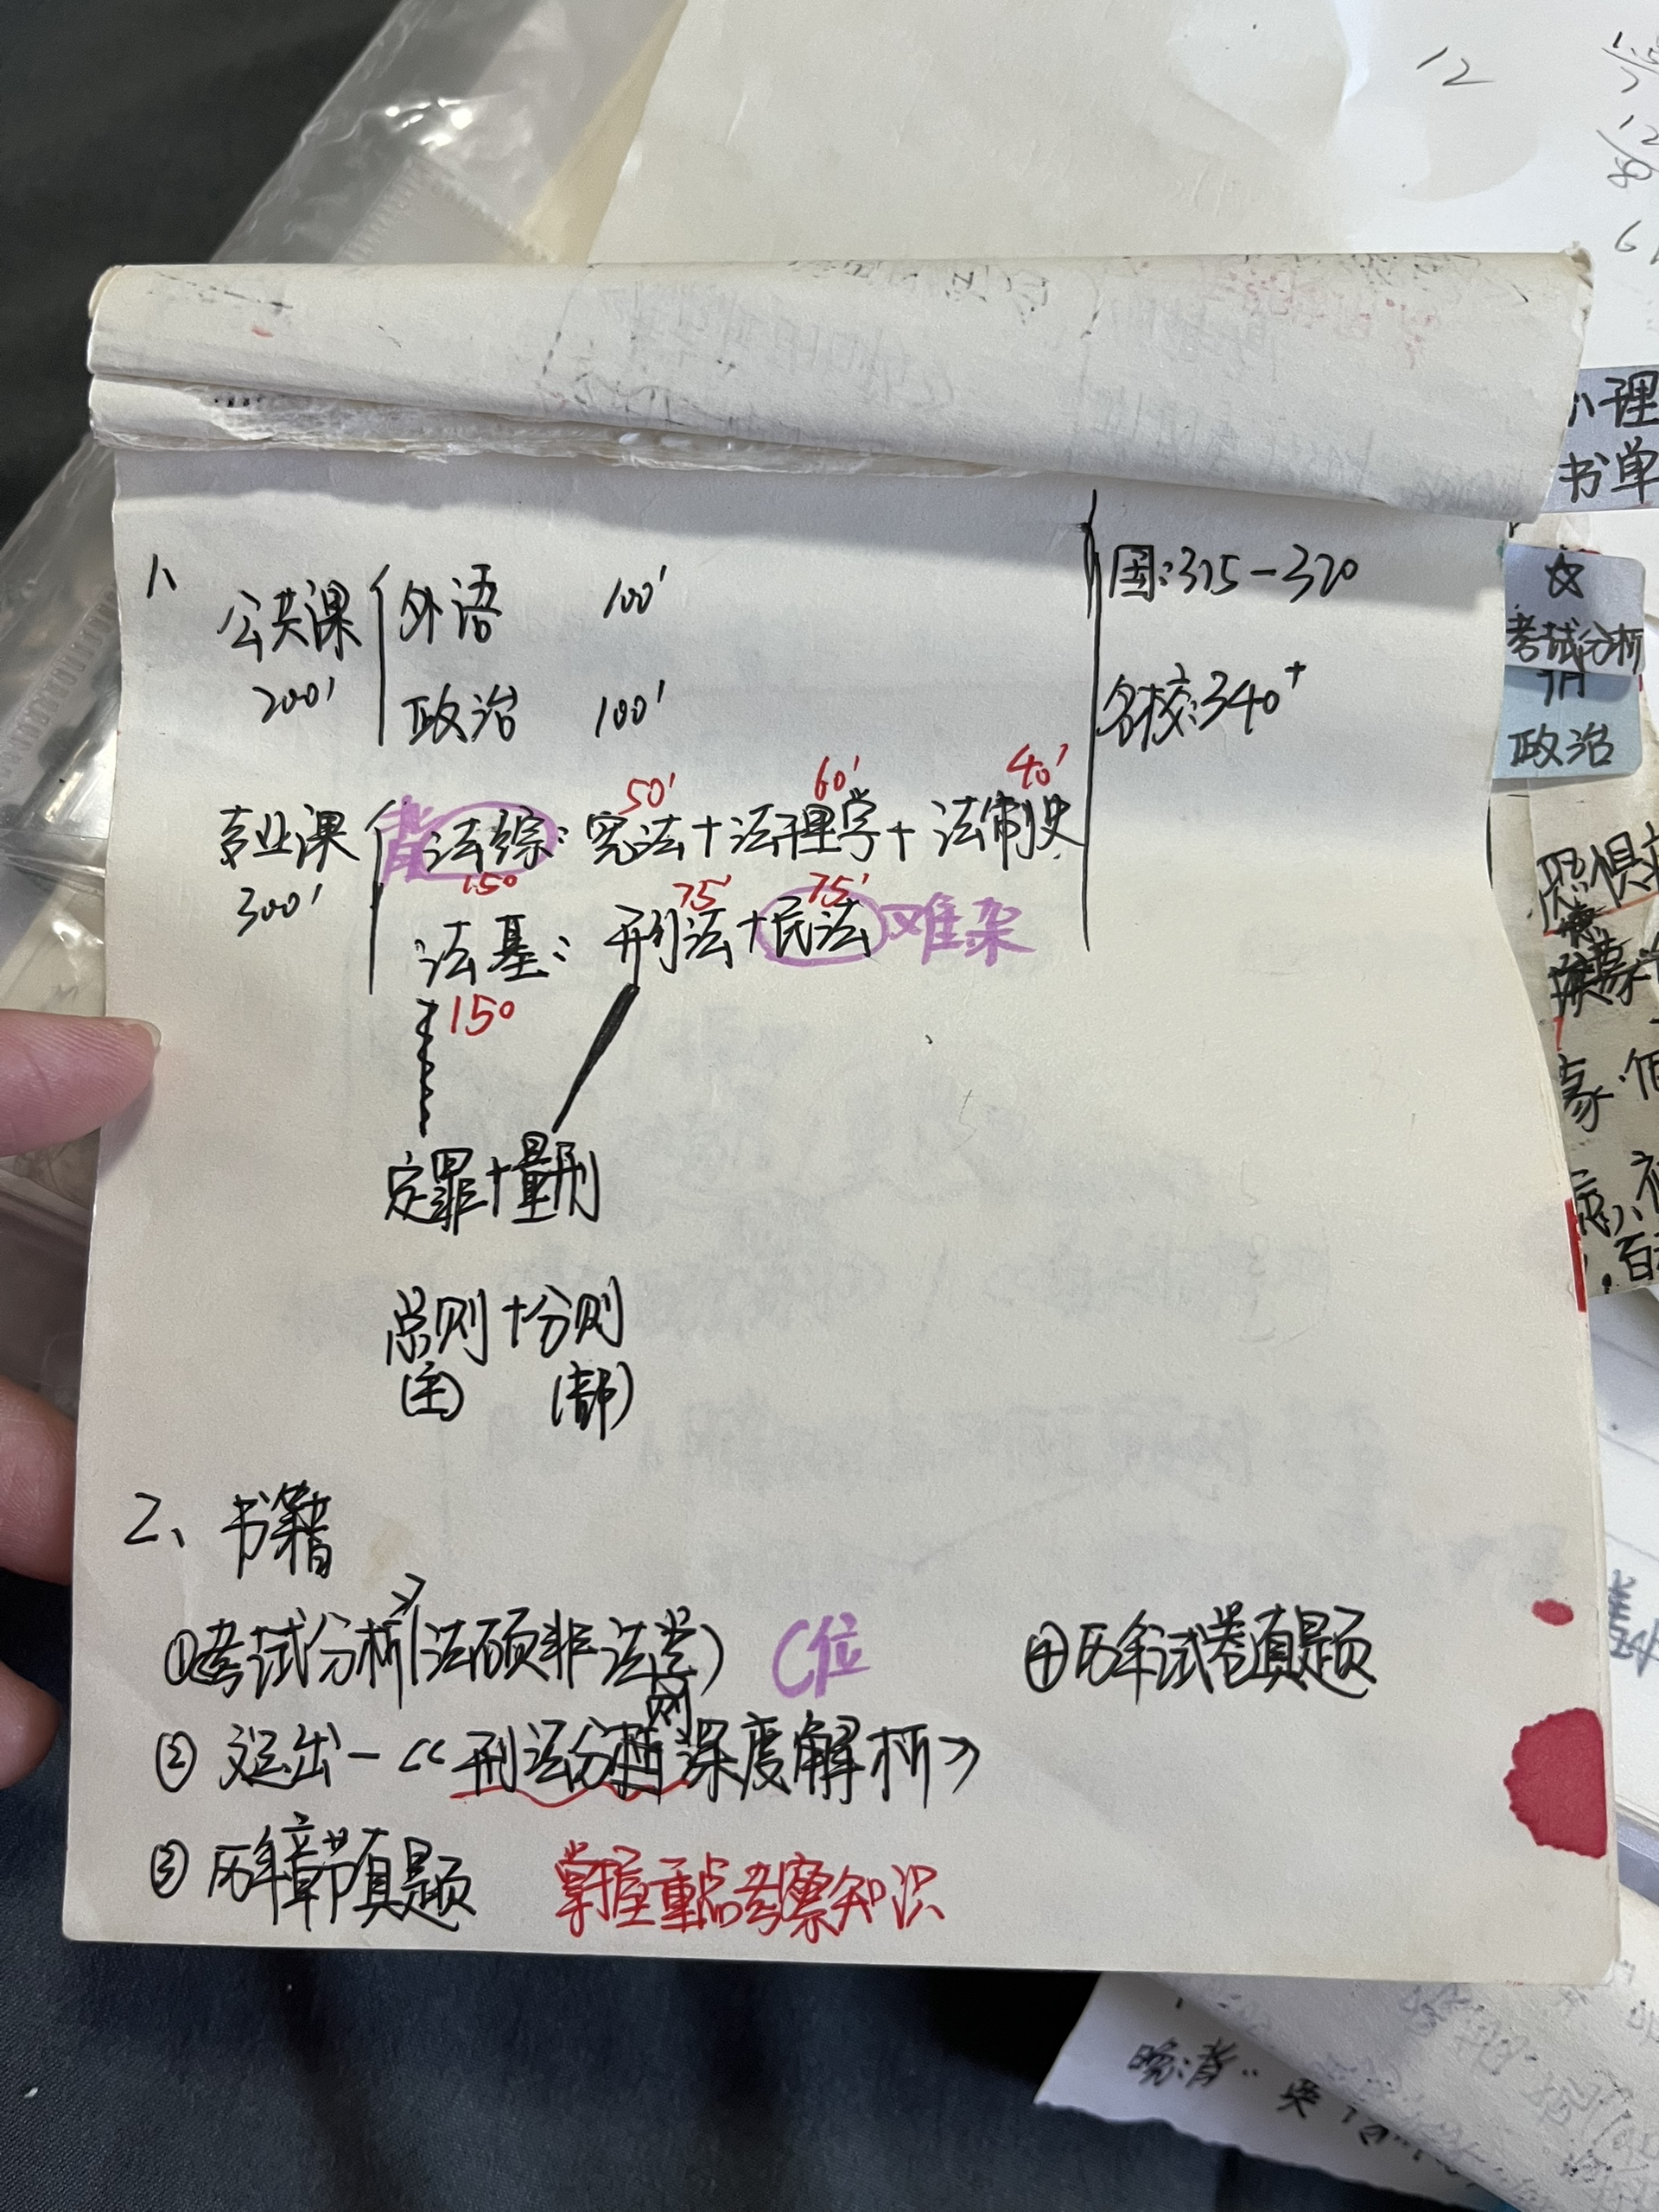 1、
公共课 外语 100'
200' 政治 100'
国:315-320
名校:340+
50' 60' 40'
专业课 背 法综: 宪法+法理学+法制史
300' 150 75' 75'
法基: 刑法+民法 难杂
150
定罪+量刑
总则+分则
(全) (部)
2、书籍
①考试分析(法硕非法学) C位
④历年试卷真题
则
② 文运出-《刑法分 深度解析》
③ 历年章节真题 掌握重点考察知识
12
书单
☆
考试分析
政治
恐惧
晚背